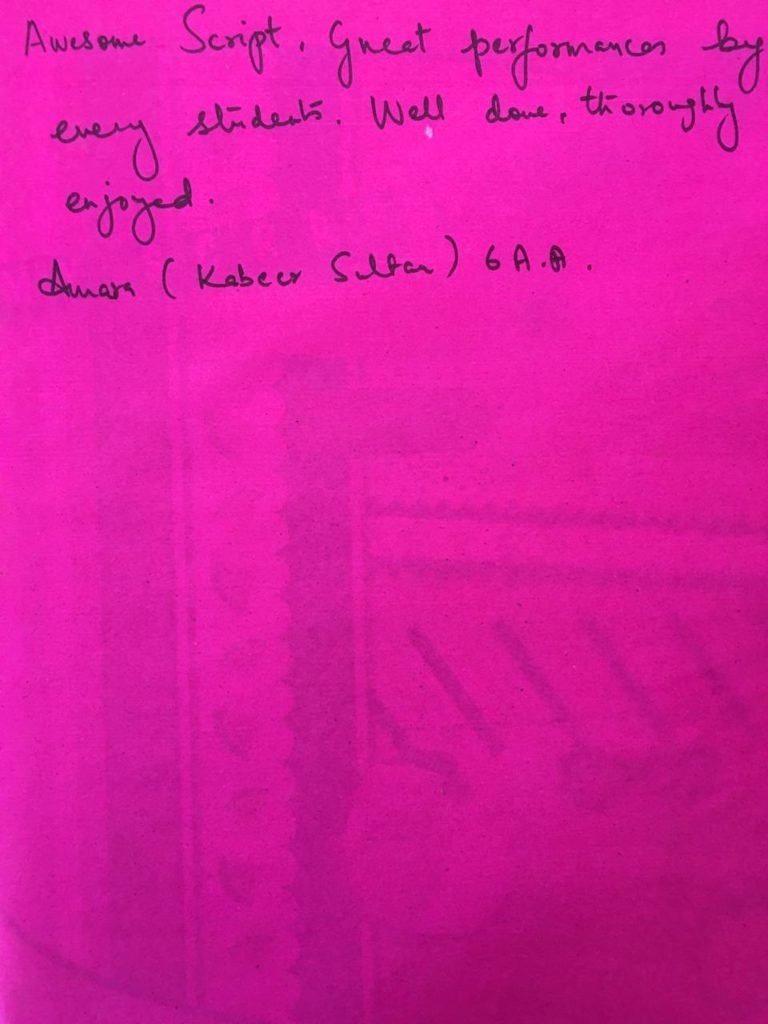 Awesome Script. Great performances by
every students. Well done, thoroughly
enjoyed.
Amara (Kabeer Sultan) 6 A.A.